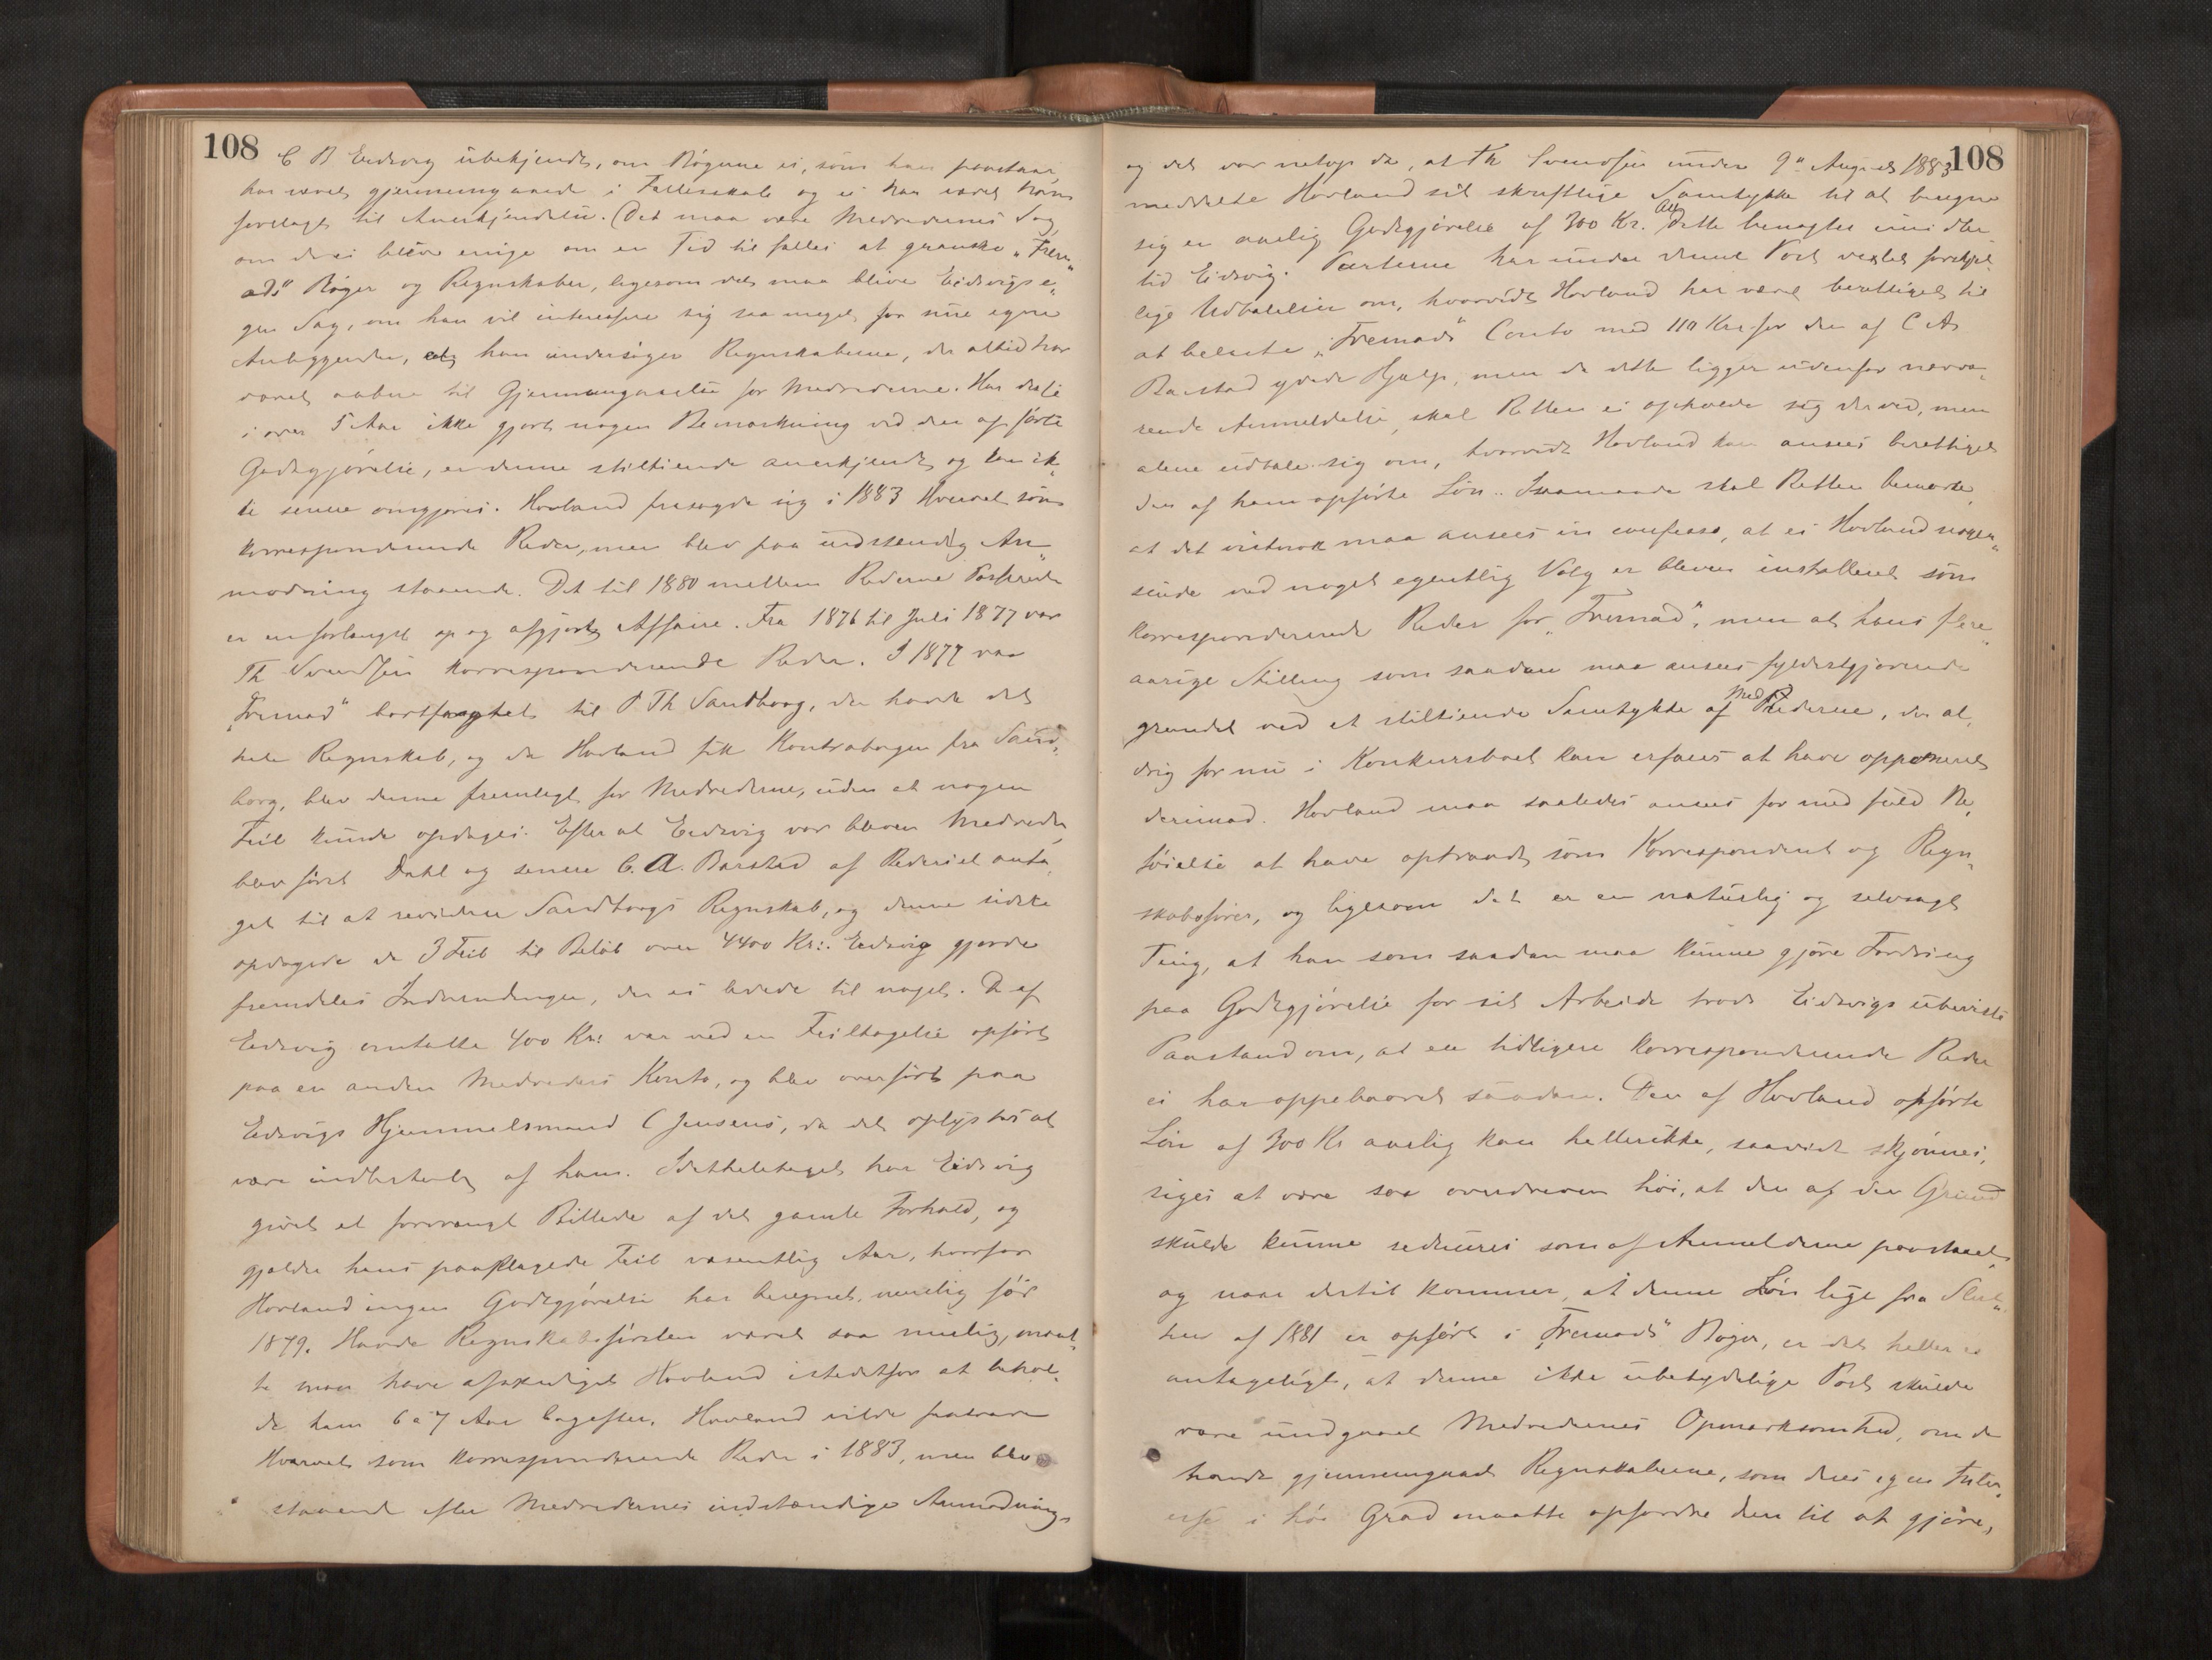 108
C B Eidsvig ubekjendt, om Bøgerne ei, som han paastaar,
har været gjennemgaaede i Fællesskab og ei har været ham
forelagt til Anerkjendelse. (Det maa være Medredernes Sag,
om de ei blive enige om en Tid til fælles at granske „Frem„
ads“ Bøger og Regnskaber, ligesom det maa blive Eidsvigs e„
gen Sag, om han vil interessere sig saa meget for sine egne
Anliggender, at han undersøger Regnskaberne, der altid har
været aabne til Gjennemgaaelse for Medrederne. Har disse
i over 5 Aar ikke gjort nogen Bemærkning ved den opførte
Godtgjørelse, er denne stiltiende anerkjendt og kan ik„
ke senere omgjøres. Hovland frasagde sig i 1883 Hvervet som
korresponderende Reder, men blev paa indstændig An„
modning staaende. Det til 1880 mellem Rederne Passerede
er en forlængst op og afgjort Affaire. Fra 1876 til Juli 1877 var
Th Svendsen korresponderende Reder. I 1877 var
„Fremad“ bortfragtet til P Th Sandborg, der havde det
hele Regnskab, og da Hovland fik Kontrabogen fra Sand„
borg, blev denne fremlagt for Medrederne, uden at nogen
Feil kunde opdages. Efter at Eidsvig var bleven Medreder,
blev først Dahl og senere C. A. Barstad af Rederiet anta„
get til at revidere Sandborgs Regnskab, og denne sidste
opdagede de 3 Feil til Beløb over 4400 Kr:. Eidsvig gjorde
fremdeles Indvendinger, der ei ledede til noget. De af
Eidsvig omtalte 400 Kr: var ved en Feiltagelse opført
paa en anden Medreders Konto, og blev overført paa
Eidsvigs Hjemmelsmand C Jensens, da det oplystes at
være indbetalt af ham. Idetheletaget har Eidsvig
givet et forvrængt Billede af det gamle Forhold, og
gjælder hans paaklagede Feil væsentlig Aar, hvorfor
Hovland ingen Godtgjørelse har beregnet, nemlig før
1879. Havde Regnskabsførslen været saa uriglig, maat„
te man have afskediget Hovland istedetfor at behol„
de ham 6 à 7 Aar bagefter. Hovland vilde fratræde
Hvervet som korresponderende Reder i 1883, men blev
staaende efter Medredernes indstændige Anmodning,
108
og det var netop da, at Th Svendsen under 9de August 1883
meddelte Hovland sit skriftlige Samtykke til at beregne
sig en aarlig Godtgjørelse af 300 Kr. Alt dette benægter imidler
tid Eidsvig. Parterne har under denne Post vexlet forskjel
lige Udtalelser om, hvorvidt Hovland har været berettiget til
at belaste „Fremads“ Conto med 110 Kr for den af C A
Barstad ydede Hjælp, men da dette ligger udenfor nærvæ„
rende Anmeldelse, skal Retten ei opholde sig derved, men
alene udtale sig om, hvorvidt Hovland kan ansees berettiget
den af ham opførte Løn. Isaamaade skal Retten bemærke,
at det vistnok maa ansees in confesso, at ei Hovland nogen„
sinde ved noget egentlig Valg er bleven installeret som
korresponderende Reder for „Fremad“, men at hans fler„
aarige Stilling som saadan maa ansees fyldestgjørende
grundet ved et stiltiende Samtykke af MedRederne, der al„
drig før nu i Konkursboet kan erfares at have opponeret
derimod. Hovland maa saaledes ansees for med fuld Be„
føielse at have optraadt som Korrespondent og Regn„
skabsfører, og ligesom det er en naturlig og selvsagt
Ting, at han som saadan maa kunne gjøre Fordring
paa Godtgjørelse for sit Arbeide trods Eidsvigs ubeviste
Paastand om, at en tidligere korresponderende Reder
ei har oppebaaret saadan. Den af Hovland opførte
Løn af 300 Kr aarlig kan hellerikke, saavidt skjønnes,
siges at være saa overdreven høi, at den af den Grund
skulde kunne reduceres som af Anmelderne paastaaet,
og naar dertil kommer, at denne Løn lige fra Slut„
ten af 1881 er opført i „Fremads“ Bøger, er det heller ei
antageligt, at denne ikke ubetydelige Post skulde
være undgaaet Medredernes Opmærksomhed, om de
havde gjennemgaaet Regnskaberne, som deres egen Inter„
esse i høi Grad maatte opfordre dem til at gjøre,